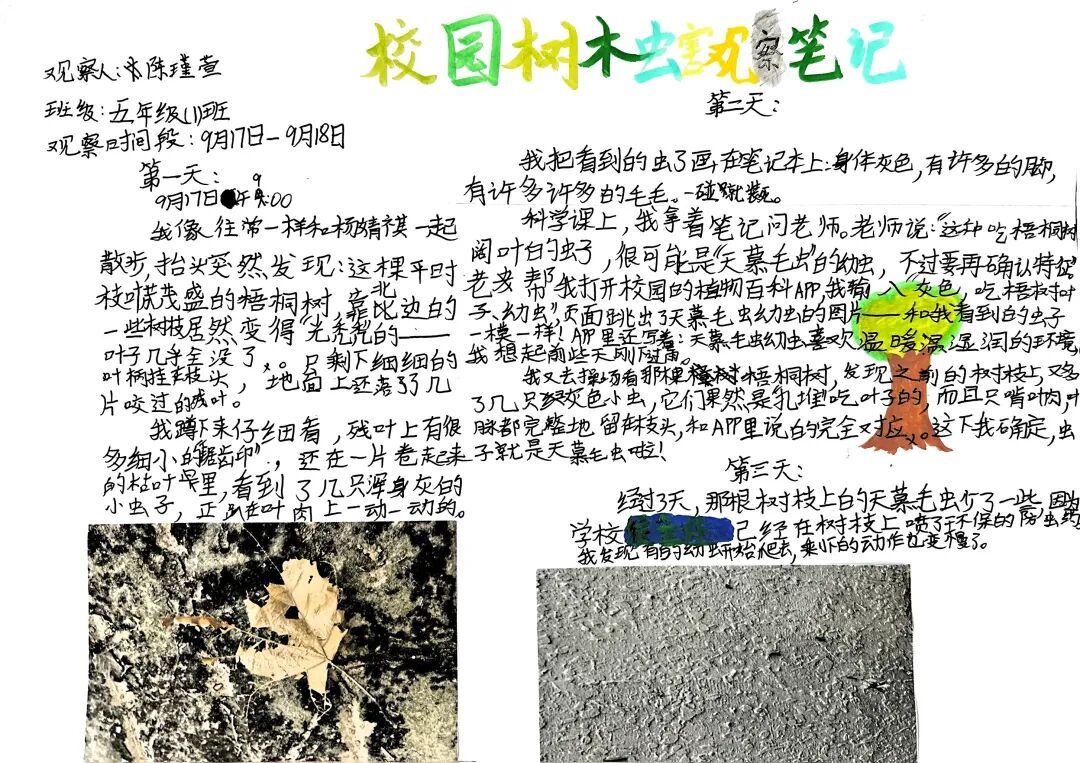 校园树木虫害观察笔记
观察人:陈瑾萱
班级:五年级(1)班
观察时间段:9月17日-9月18日
第一天:
9月17日 午9:00
我像往常一样和杨晴祺一起
散步,抬头突然发现:这棵平时
枝叶茂盛的梧桐树,靠北边的
一些树枝居然变得“光秃秃”的——
叶子几乎全没了,。只剩下细细的
叶柄挂在枝头,地面上还落了几
片咬过的残叶。
我蹲下来仔细看,残叶上有很
多细小的“锯齿印”,还在一片卷起来
的枯叶里,看到了几只浑身灰白的
小虫子,正趴在叶肉上一动一动的。
第二天:
我把看到的虫子画在笔记本上:身体灰色,有许多的脚,
有许多许多的毛毛。一碰就
科学课上,我拿着笔记问老师。老师说:“这种吃梧桐树
阔叶的虫子,很可能是“天幕毛虫”的幼虫,不过要再确认特征”
老师帮我打开校园的植物百科APP,我输入“灰色,吃梧树叶
子、幼虫”,页面跳出了天幕毛虫幼虫的图片——和我看到的虫子
一模一样!APP里还写着:天幕毛虫幼虫喜欢温暖湿润的环境,
我想起前些天刚下过雨。
我又去操场看那棵梧桐树,发现之前的树枝上,又多
了几只灰色小虫,它们果然是“扎堆”吃叶子的,而且只啃叶肉,叶
脉都完整地留在枝头,和APP里说的完全对应,。这下我确定,虫
子就是天幕毛虫啦!
第三天:
经过3天,那根树枝上的天幕毛虫少了一些,因为
学校 已经在树枝上喷了环保的防虫药
我发现有的幼虫开始爬走,剩下的动作也变慢了。